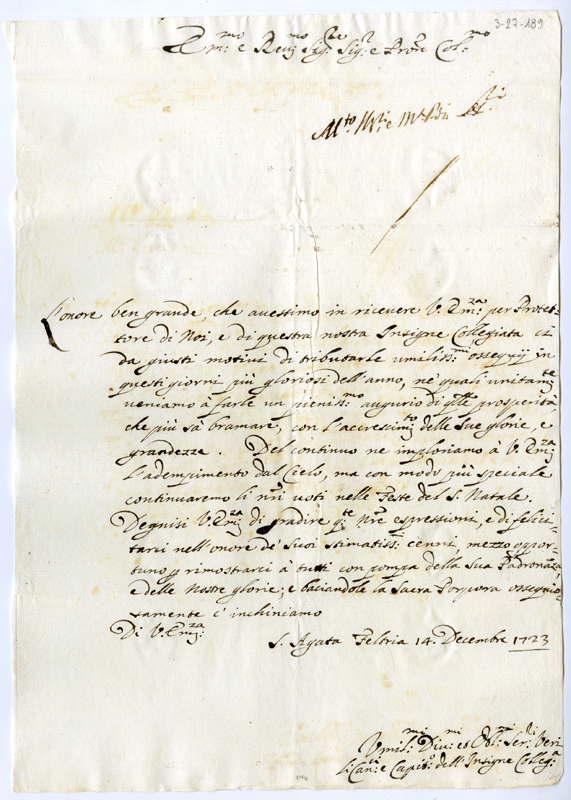 3-27-189
Em:mo e Reu:mo Sig:re Sig:r e Prōn Col:mo
L'onore ben grande, che auessimo in riceuere V. Em:za per Protet=
tore di Noi, e di questa nostra Insigne Collegiata ci
da giusti motiui di tributarle umiliss:mi ossequij in
questi giorni più gloriosi dell'anno, ne' quali unitam:te
ueniamo à farle un pieniss:mo augurio di q:lle prosperità
che più sà bramare, con l'accrescim:to delle Sue glorie, e
grandezze. Del continuo ne imploriamo à V. Em:za
l'adempimento dal Cielo, ma con modo più speciale
continuaremo li nr̄i uoti nelle Feste del S. Natale.
Degnisi V. Em:za di gradire q:te nr̄e espressioni, e di felici=
tarci nell'onore de' Suoi stimatiss:mi cenni, mezzo oppor=
tuno p rimostrarci à tutti con pompa della Sua Padronāza,
e delle Nostre glorie; e baciandole la Sacra Porpora ossequio=
samente c'inchiniamo
Di V. Em:za
S. Agata Feltria 14. Decembre 1723
Vmil:mi Diu:mi et Obl:mi Ser:di Veri
Li Can:ci e Capit:o dell'Insigne Colleg:a